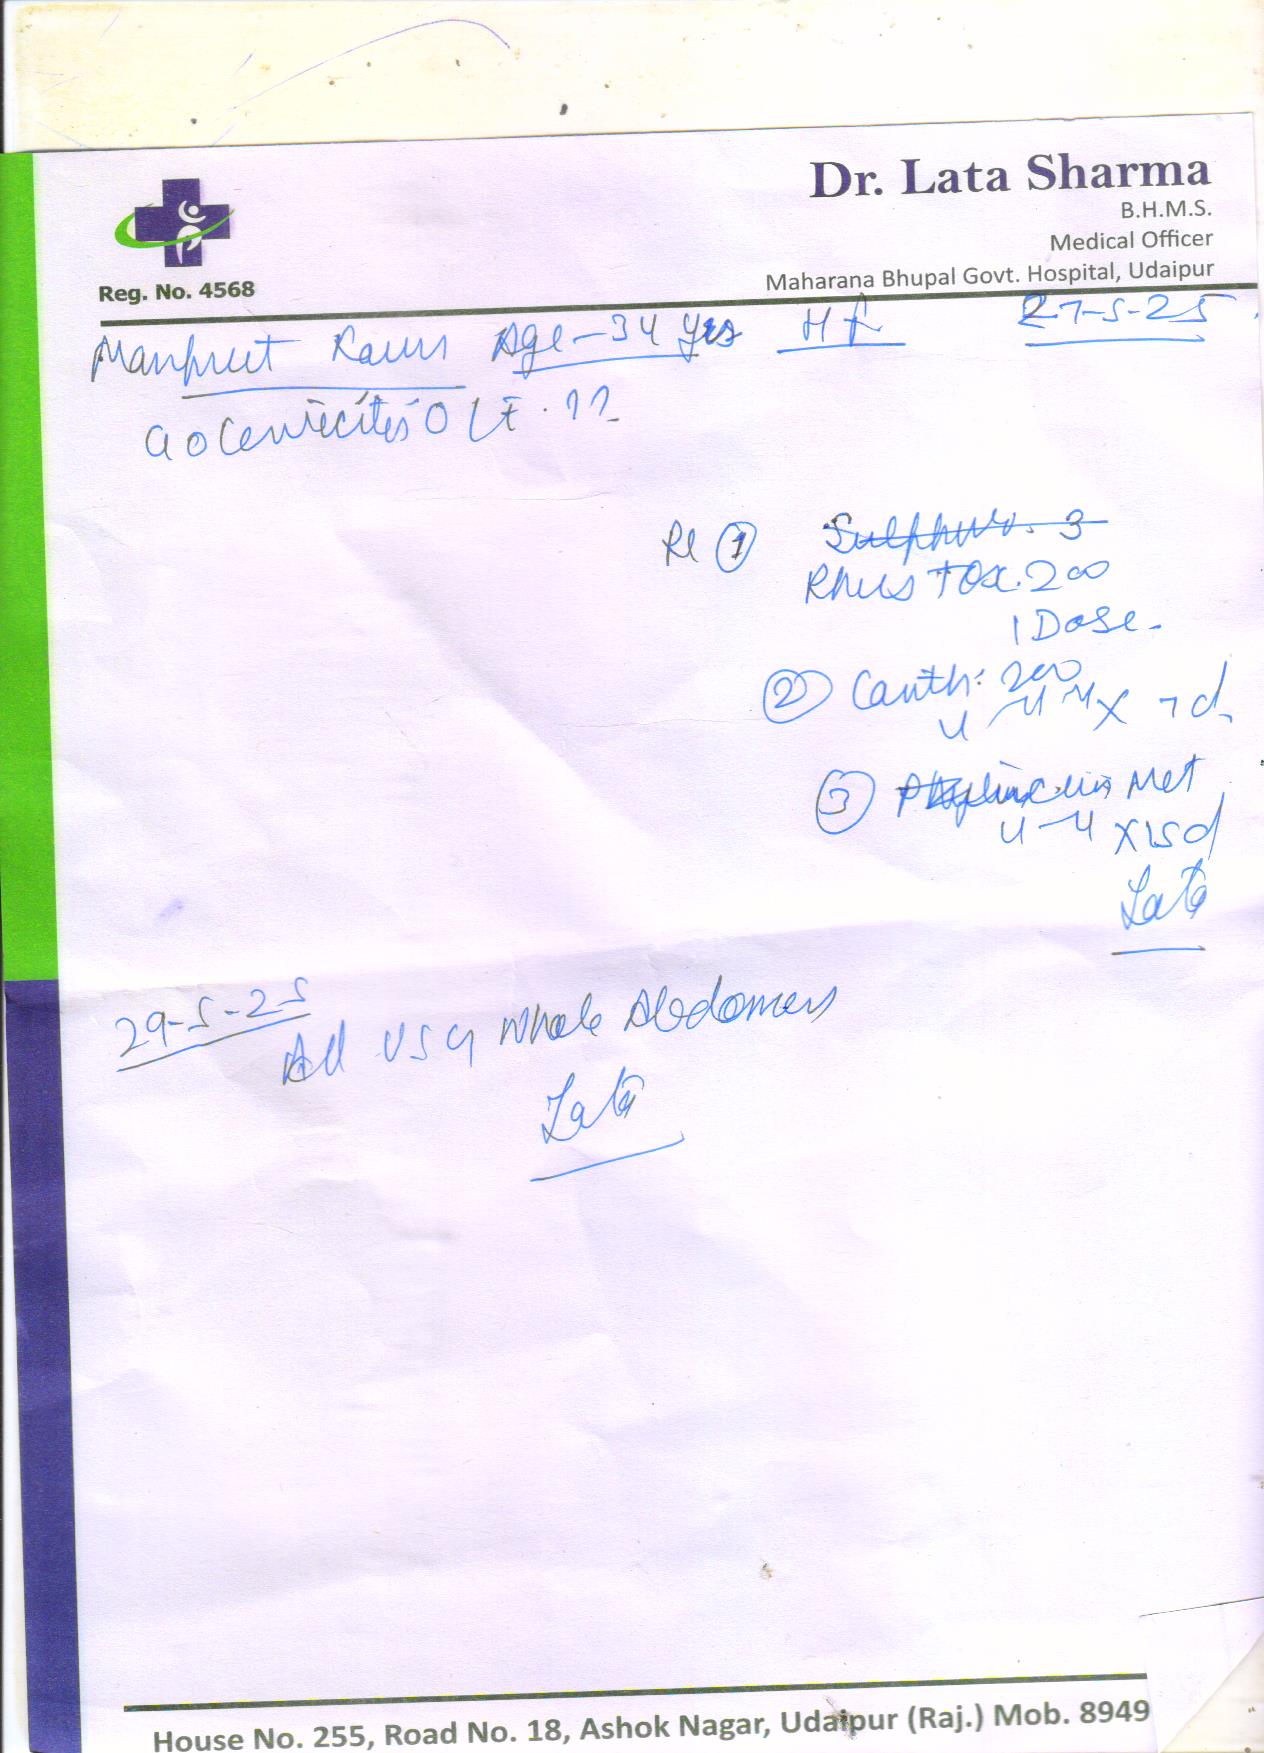 Dr. Lata Sharma
B.H.M.S.
Medical Officer
Maharana Bhupal Govt. Hospital, Udaipur
Reg. No. 4568
27-5-25
Manpreet Kaur Age-34 yrs
Rx ① Sulphur. 3
Rhus Tox. 200
1 Dose.
② Canth: 200
X 7d
③ Met
X 15d
Lata
29-5-25
Adv USG Whole Abdomen
Lata
House No. 255, Road No. 18, Ashok Nagar, Udaipur (Raj.) Mob. 8949